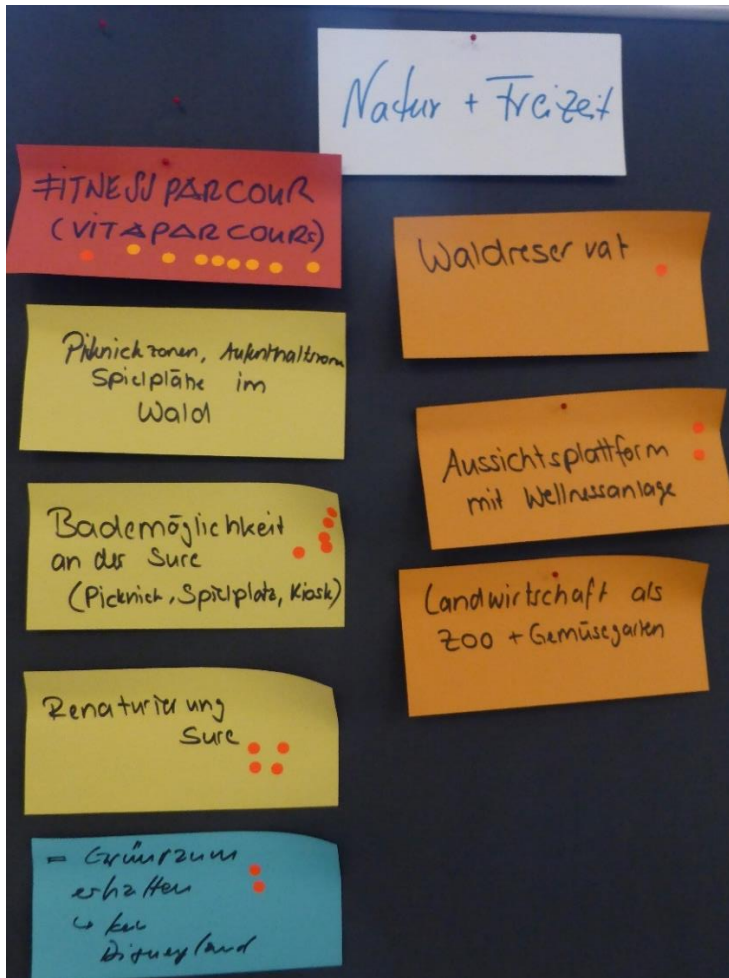 Natur + Freizeit
FITNESSPARCOUR
(VITAPARCOURS)
Picknickzonen, Aufenthaltszonen
Spielplätze im
Wald
Bademöglichkeit
an der Sure
(Picknick, Spielplatz, Kiosk)
Renaturierung
Sure
- Grünraum
erhalten
↳ kein
Disneyland
Waldreservat
Aussichtsplattform
mit Wellnessanlage
Landwirtschaft als
Zoo + Gemüsegarten